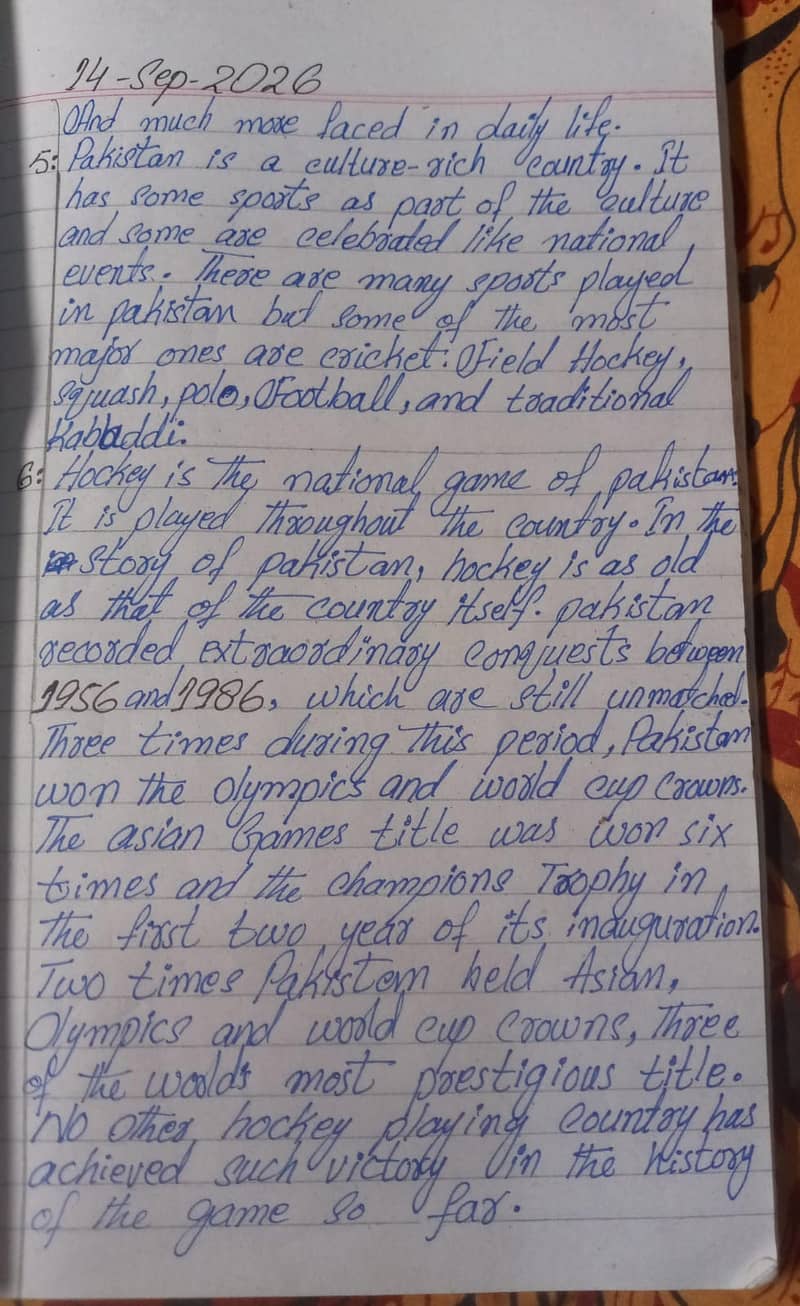 14-Sep-2026
And much more faced in daily life.
5: Pakistan is a culture-rich country. It
has some sports as part of the culture
and some are celebrated like national
events. There are many sports played
in pakistan but some of the most
major ones are cricket. Field Hockey,
squash, polo, Football, and traditional
Kabbaddi.
6: Hockey is the national game of pakistan.
It is played throughout the country. In the
story of pakistan, hockey is as old
as that of the country itself. pakistan
recorded extraordinary conquests between
1956 and 1986, which are still unmatched.
Three times during this period, Pakistan
won the olympics and world cup crowns.
The asian Games title was won six
times and the champions Trophy in
the first two year of its inauguration.
Two times Pakistan held Asian,
Olympics and world cup crowns, three
of the world's most prestigious title.
No other hockey playing country has
achieved such victory in the history
of the game so far.